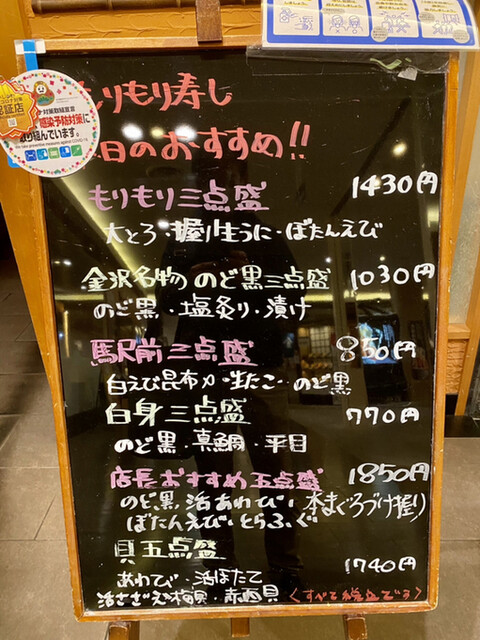 もりもり寿し
日のおすすめ!!
もりもり三点盛 1430円
大とろ・握り生うに・ぼたんえび
金沢名物 のど黒三点盛 1030円
のど黒・塩炙り・漬け
駅前三点盛 850円
白えび昆布〆・生たこ・のど黒
白身三点盛 770円
のど黒・真鯛・平目
店長おすすめ五点盛 1850円
のど黒 活あわび・本まぐろづけ握り
ぼたんえび・とらふぐ
貝五点盛 1740円
あわび・活ほたて
活さざえ・梅貝・赤西貝 〈すべて税込です〉
認証店
対策取組宣言
感染予防対策に
取り組んでいます。